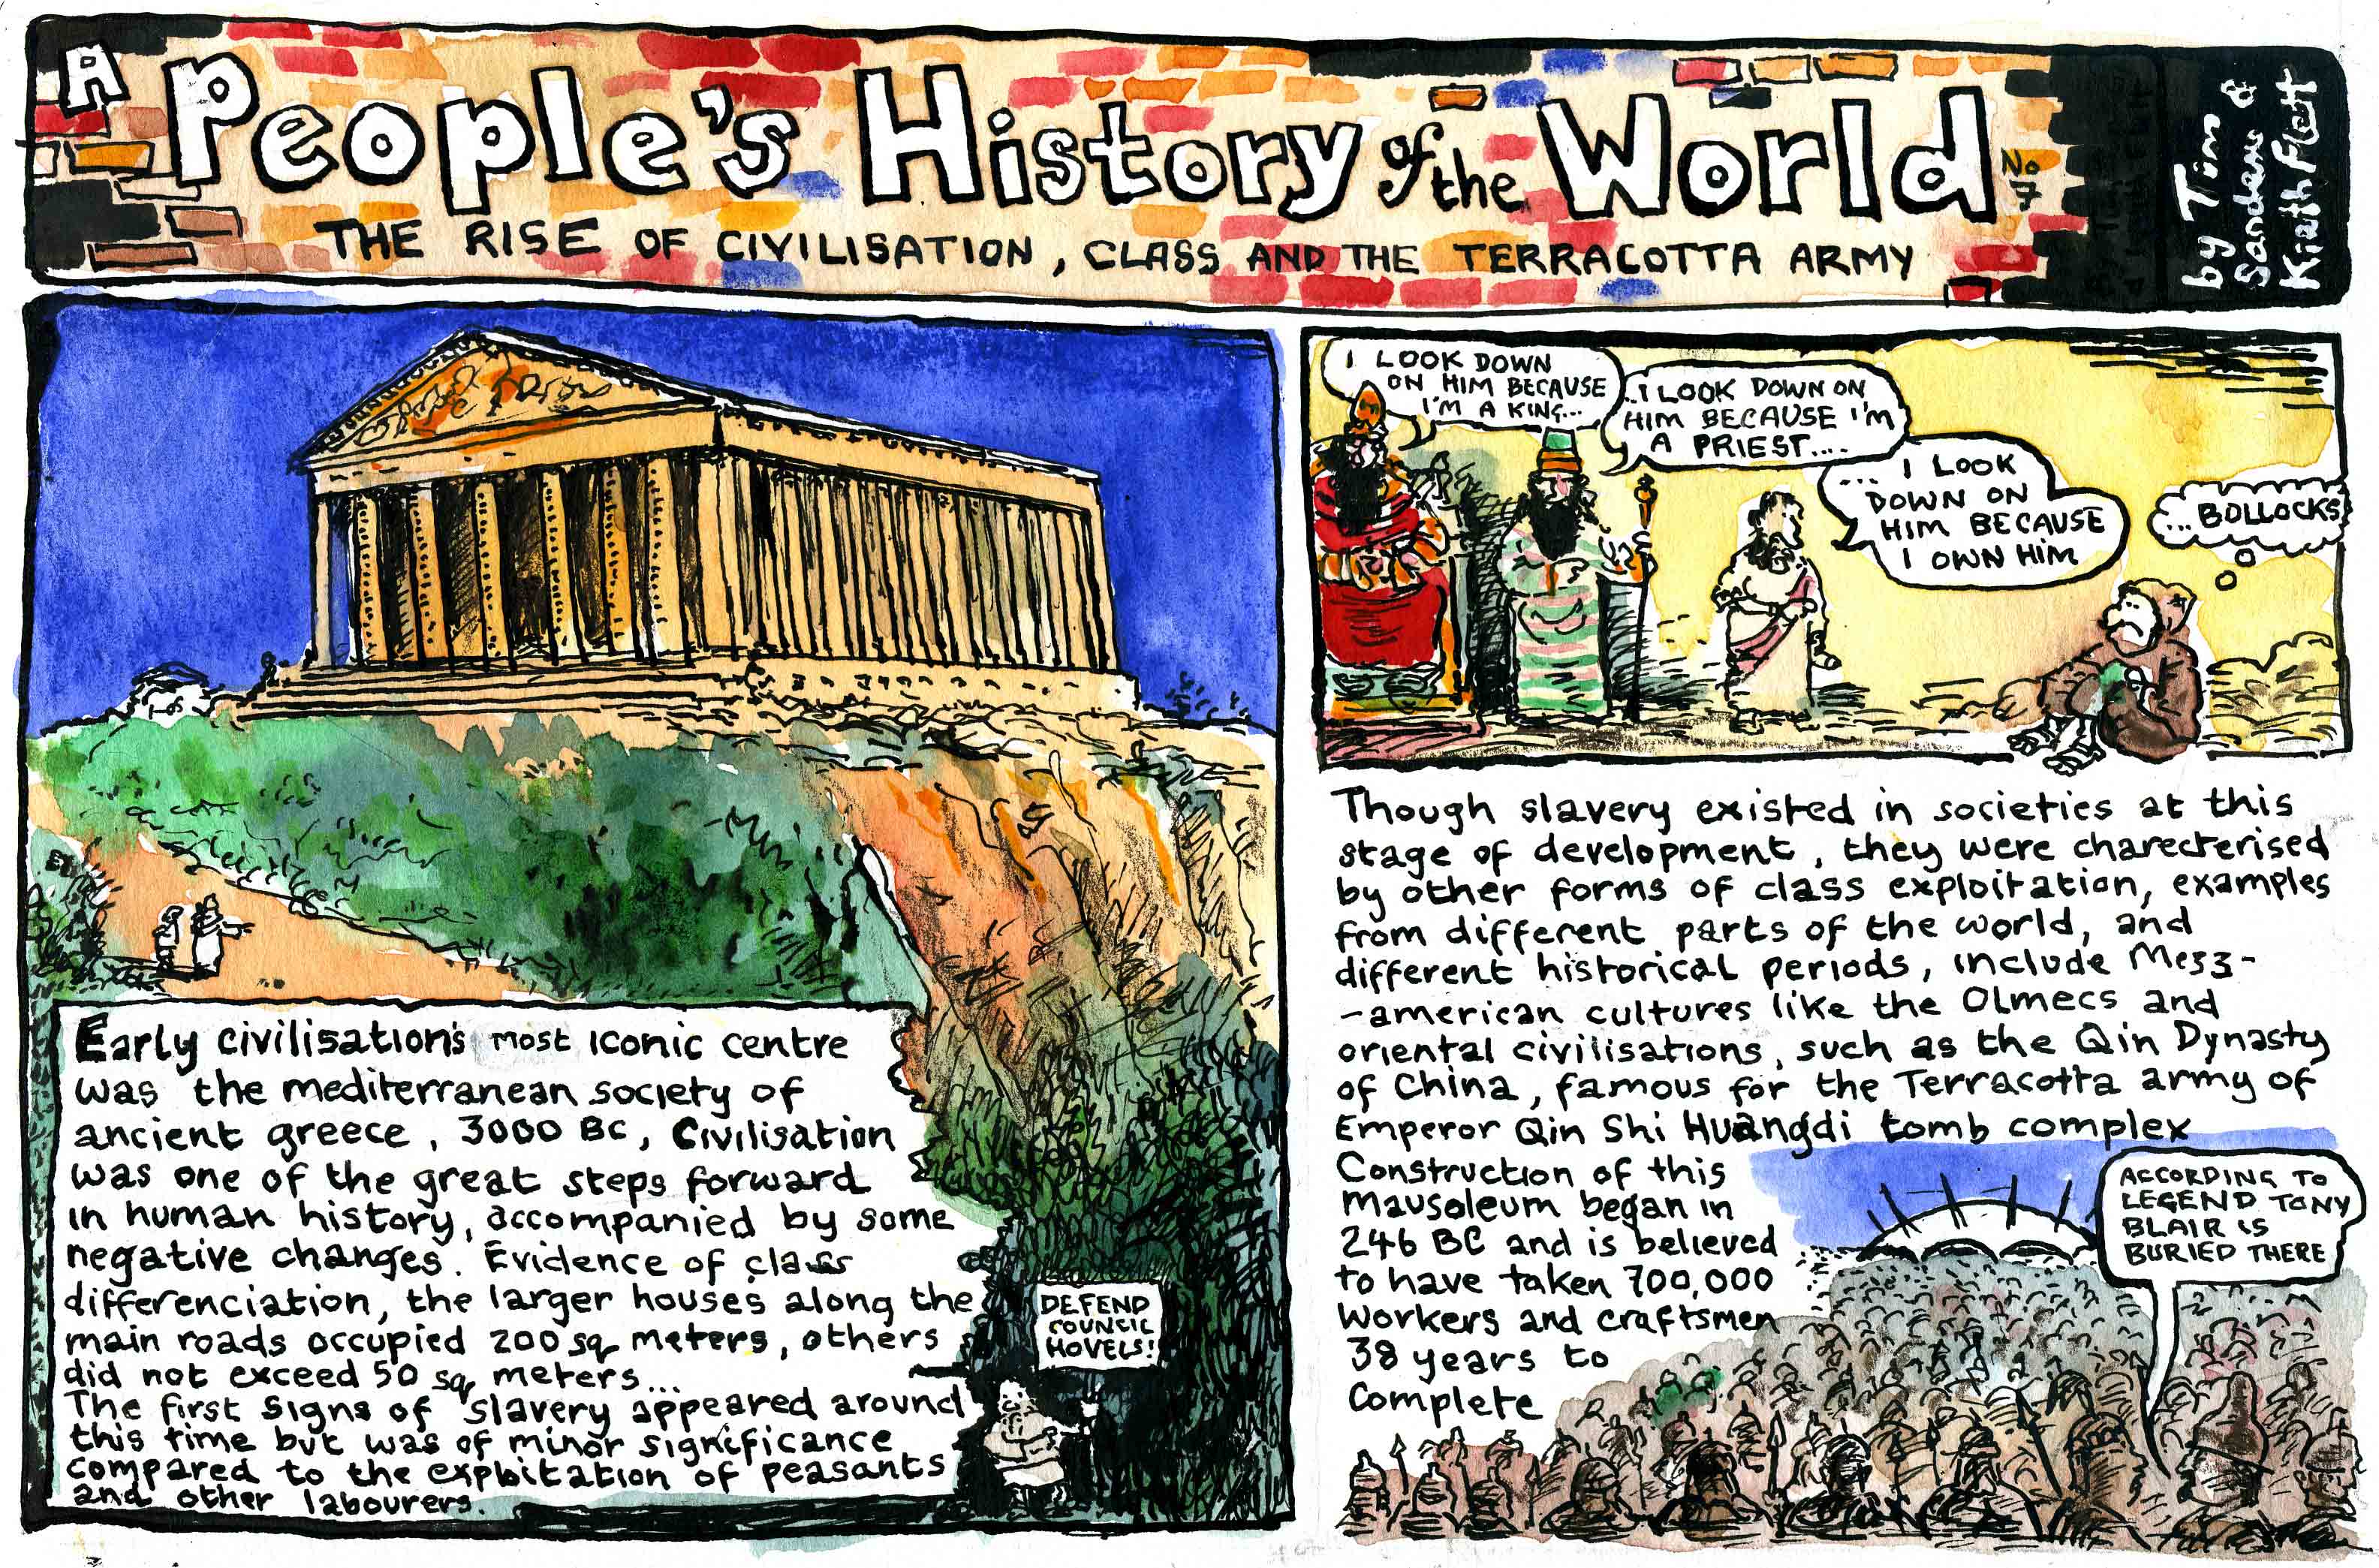 A People's History of the World No 7
THE RISE OF CIVILISATION, CLASS AND THE TERRACOTTA ARMY
by Tim
Sanders &
Kieth Flett
Early civilisation's most iconic centre
was the mediterranean society of
ancient greece, 3000 BC, Civilisation
was one of the great steps forward
in human history, accompanied by some
negative changes. Evidence of class
differenciation, the larger houses along the
main roads occupied 200 sq meters, others
did not exceed 50 sq meters...
The first signs of slavery appeared around
this time but was of minor significance
compared to the exploitation of peasants
and other labourers.
DEFEND
COUNCIL
HOVELS!
I LOOK DOWN
ON HIM BECAUSE
I'M A KING...
...I LOOK DOWN ON
HIM BECAUSE I'M
A PRIEST....
... I LOOK
DOWN ON
HIM BECAUSE
I OWN HIM
...BOLLOCKS
Though slavery existed in societies at this
stage of development, they were charecterised
by other forms of class exploitation, examples
from different parts of the world, and
different historical periods, include Mezz-
-american cultures like the Olmecs and
oriental civilisations, such as the Qin Dynasty
of China, famous for the Terracotta army of
Emperor Qin Shi Huangdi tomb complex
Construction of this
mausoleum began in
246 BC and is believed
to have taken 700,000
workers and craftsmen
38 years to
complete
ACCORDING TO
LEGEND TONY
BLAIR IS
BURIED THERE